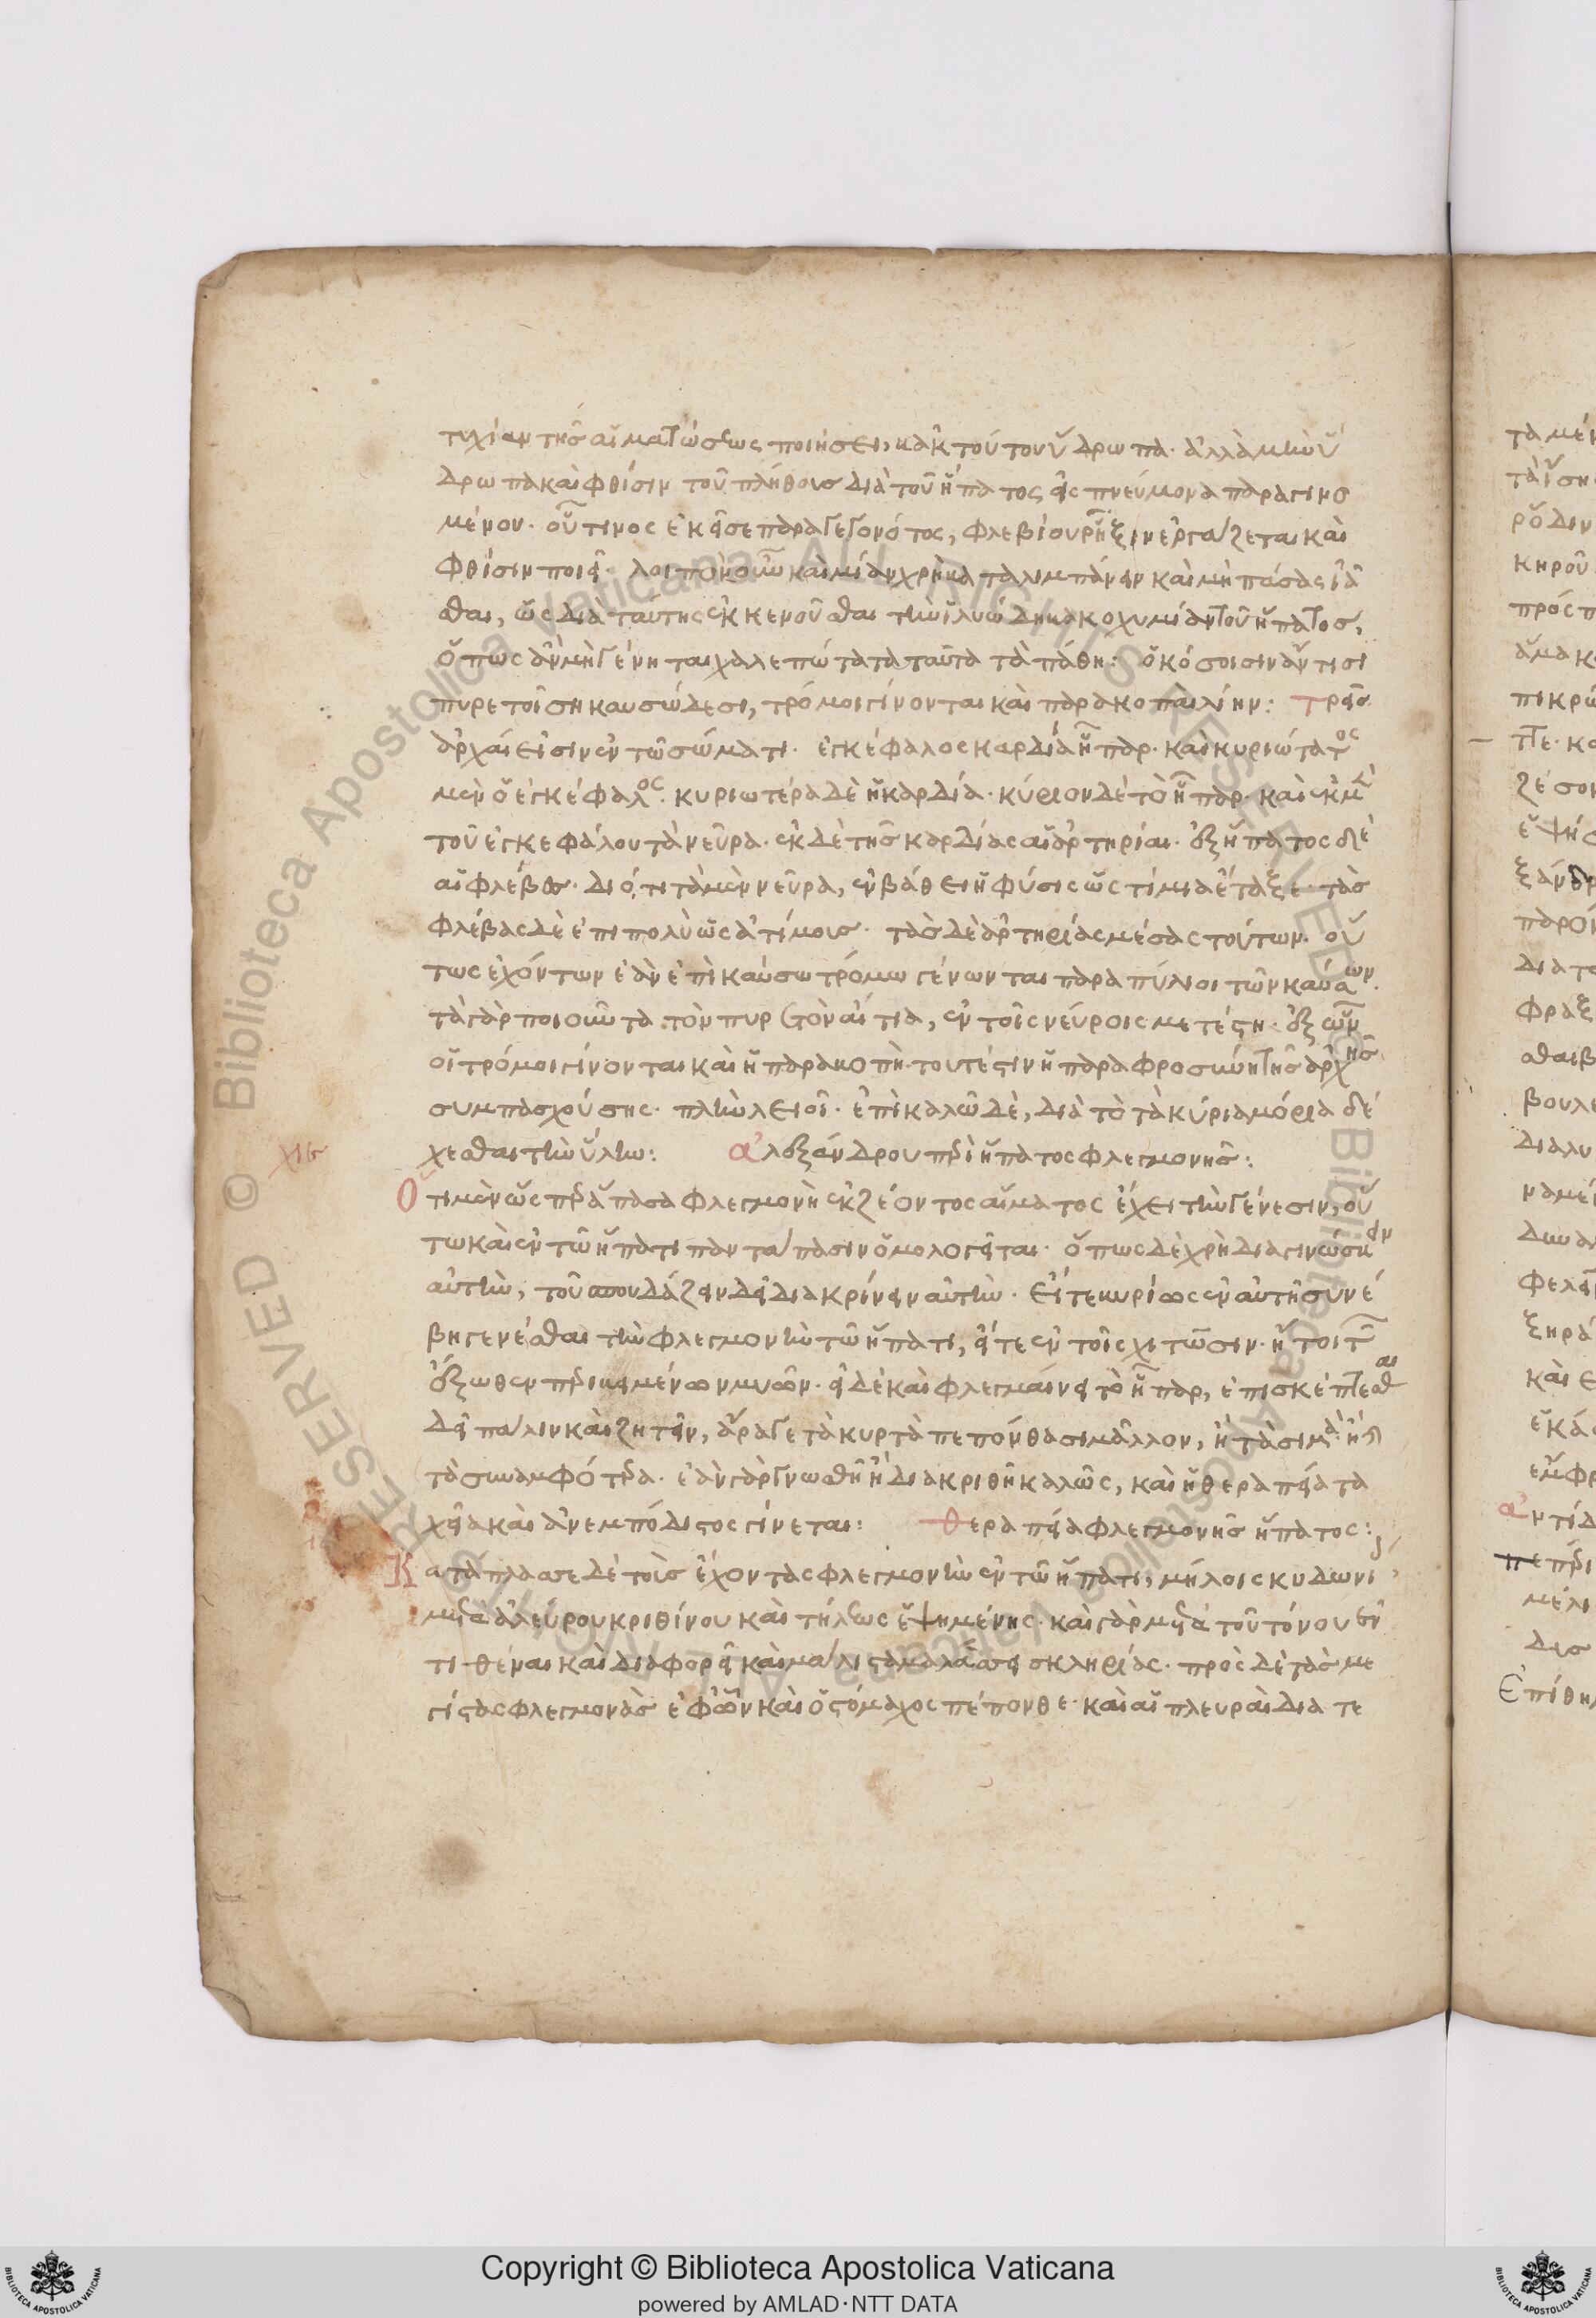 τυχίαν τῆς αἱματώσεως ποιήσει, κἀκ τούτου ὕδρωπα· ἀλλὰ μὴν ὕ
δρωπα καὶ φθίσιν τοῦ πλήθους διὰ τοῦ ἥπατος εἰς πνεύμονα παραγινο
μένου· οὗτινος ἐκεῖσε παραγεγονότος, φλεβίου ῥῆξιν ἐργάζεται καὶ
φθίσιν ποιεῖ· λοιπὸν οὖν καὶ μίαν χρὴ καταλιμπάνειν καὶ μὴ πάσας ἰᾶ
σθαι, ὡς διὰ ταύτης ἐκκενοῦσθαι τὴν ἰλυώδη κακοχυμίαν τοῦ ἥπατος,
ὅπως ἂν μὴ γένηται χαλεπώτατα ταῦτα τὰ πάθη: ὁκόσοισιν ἂν τισι
πυρετοῖσι καυσώδεσι, τρόμοι γίνονται καὶ παρακοπαὶ λίην: Τρεῖς
ἀρχαί εἰσιν ἐν τῷ σώματι· ἐγκέφαλος καρδία ἧπαρ· καὶ κυριώτατος
μὲν ὁ ἐγκέφαλος· κυριωτέρα δὲ ἡ καρδία· κύριον δὲ τὸ ἧπαρ· καὶ ἐκ μὲν
τοῦ ἐγκεφάλου τὰ νεῦρα· ἐκ δὲ τῆς καρδίας αἱ ἀρτηρίαι· ἐξ ἥπατος δὲ
αἱ φλέβες· διότι τὰ μὲν νεῦρα, ἐν βάθει ἡ φύσις ὡς τίμια ἔταξε· τὰς
φλέβας δὲ ἐπιπολὺ ὡς ἀτίμους· τὰς δὲ ἀρτηρίας μέσας τούτων· οὕ
τως ἐχόντων ἐὰν ἐπὶ καύσω τρόμω γένωνται παρὰ πύλιοι τῶν καύσων·
τὰ γὰρ ποιοῦντα τὸν πυρετὸν αἴτια, ἐν τοῖς νεύροις μετέστη· ἐξ ὧν
οἱ τρόμοι γίνονται καὶ ἡ παρακοπὴ· τουτέστιν ἡ παραφροσύνη τῆς ἀρχῆς
συμπασχούσης· πλὴν λειοῖ· ἐπὶ καλῷ δὲ, διὰ τὸ τὰ κύρια μόρια δέ
χεσθαι τὴν ὕλην: ἀλεξάνδρου περὶ ἥπατος φλεγμονῆς:
Ὅτι μὲν ὥσπερ ἅπασα φλεγμονὴ ἐκ ζέοντος αἵματος ἔχει τὴν γένεσιν, οὕ
τω καὶ ἐν τῷ ἥπατι παντάπασιν ὁμολογεῖται· ὅπως δὲ χρὴ διαγινώσκειν
αὐτὴν, τοῦ σπουδάζειν δεῖ διακρίνειν αὐτὴν· εἴτε κυρίως ἐν αὐτῇ συνέ
βη γενέσθαι τὴν φλεγμονὴν τῷ ἥπατι, εἴτε ἐν τοῖς χιτῶσιν· ἤτοι τῶν
ἔξωθεν περικειμένων μυῶν· εἰ δὲ καὶ φλεγμαίνει τὸ ἧπαρ, ἐπισκέπτεσθαι
δεῖ πάλιν καὶ ζητεῖν, ἆρά γε τὰ κυρτὰ πεπόνθασι μᾶλλον, ἢ τὰ σιμὰ· ἢ
τὰ συναμφότερα· ἐὰν γὰρ γνωσθῇ ἢ διακριθῇ καλῶς, καὶ ἡ θεραπεία τα
χεῖα καὶ ἀνεμπόδιστος γίνεται: θεραπεία φλεγμονῆς ἥπατος:
Κατάπλασσε δὲ τοὺς ἔχοντας φλεγμονὴν ἐν τῷ ἥπατι, μήλοις κυδωνί
μετὰ ἀλεύρου κριθίνου καὶ τήλεως ἑψημένης· καὶ γὰρ μετὰ τοῦ τόνου ἐν
τιθέναι καὶ διαφορεῖ καὶ μάλιστα μαλάσσει σκληρίας· πρὸς δὲ τὰς με
γίστας φλεγμονὰς ἐφ' ὧν καὶ ὁ στόμαχος πέπονθε· καὶ αἱ πλευραὶ διατε
Copyright © Biblioteca Apostolica Vaticana
powered by AMLAD·NTT DATA